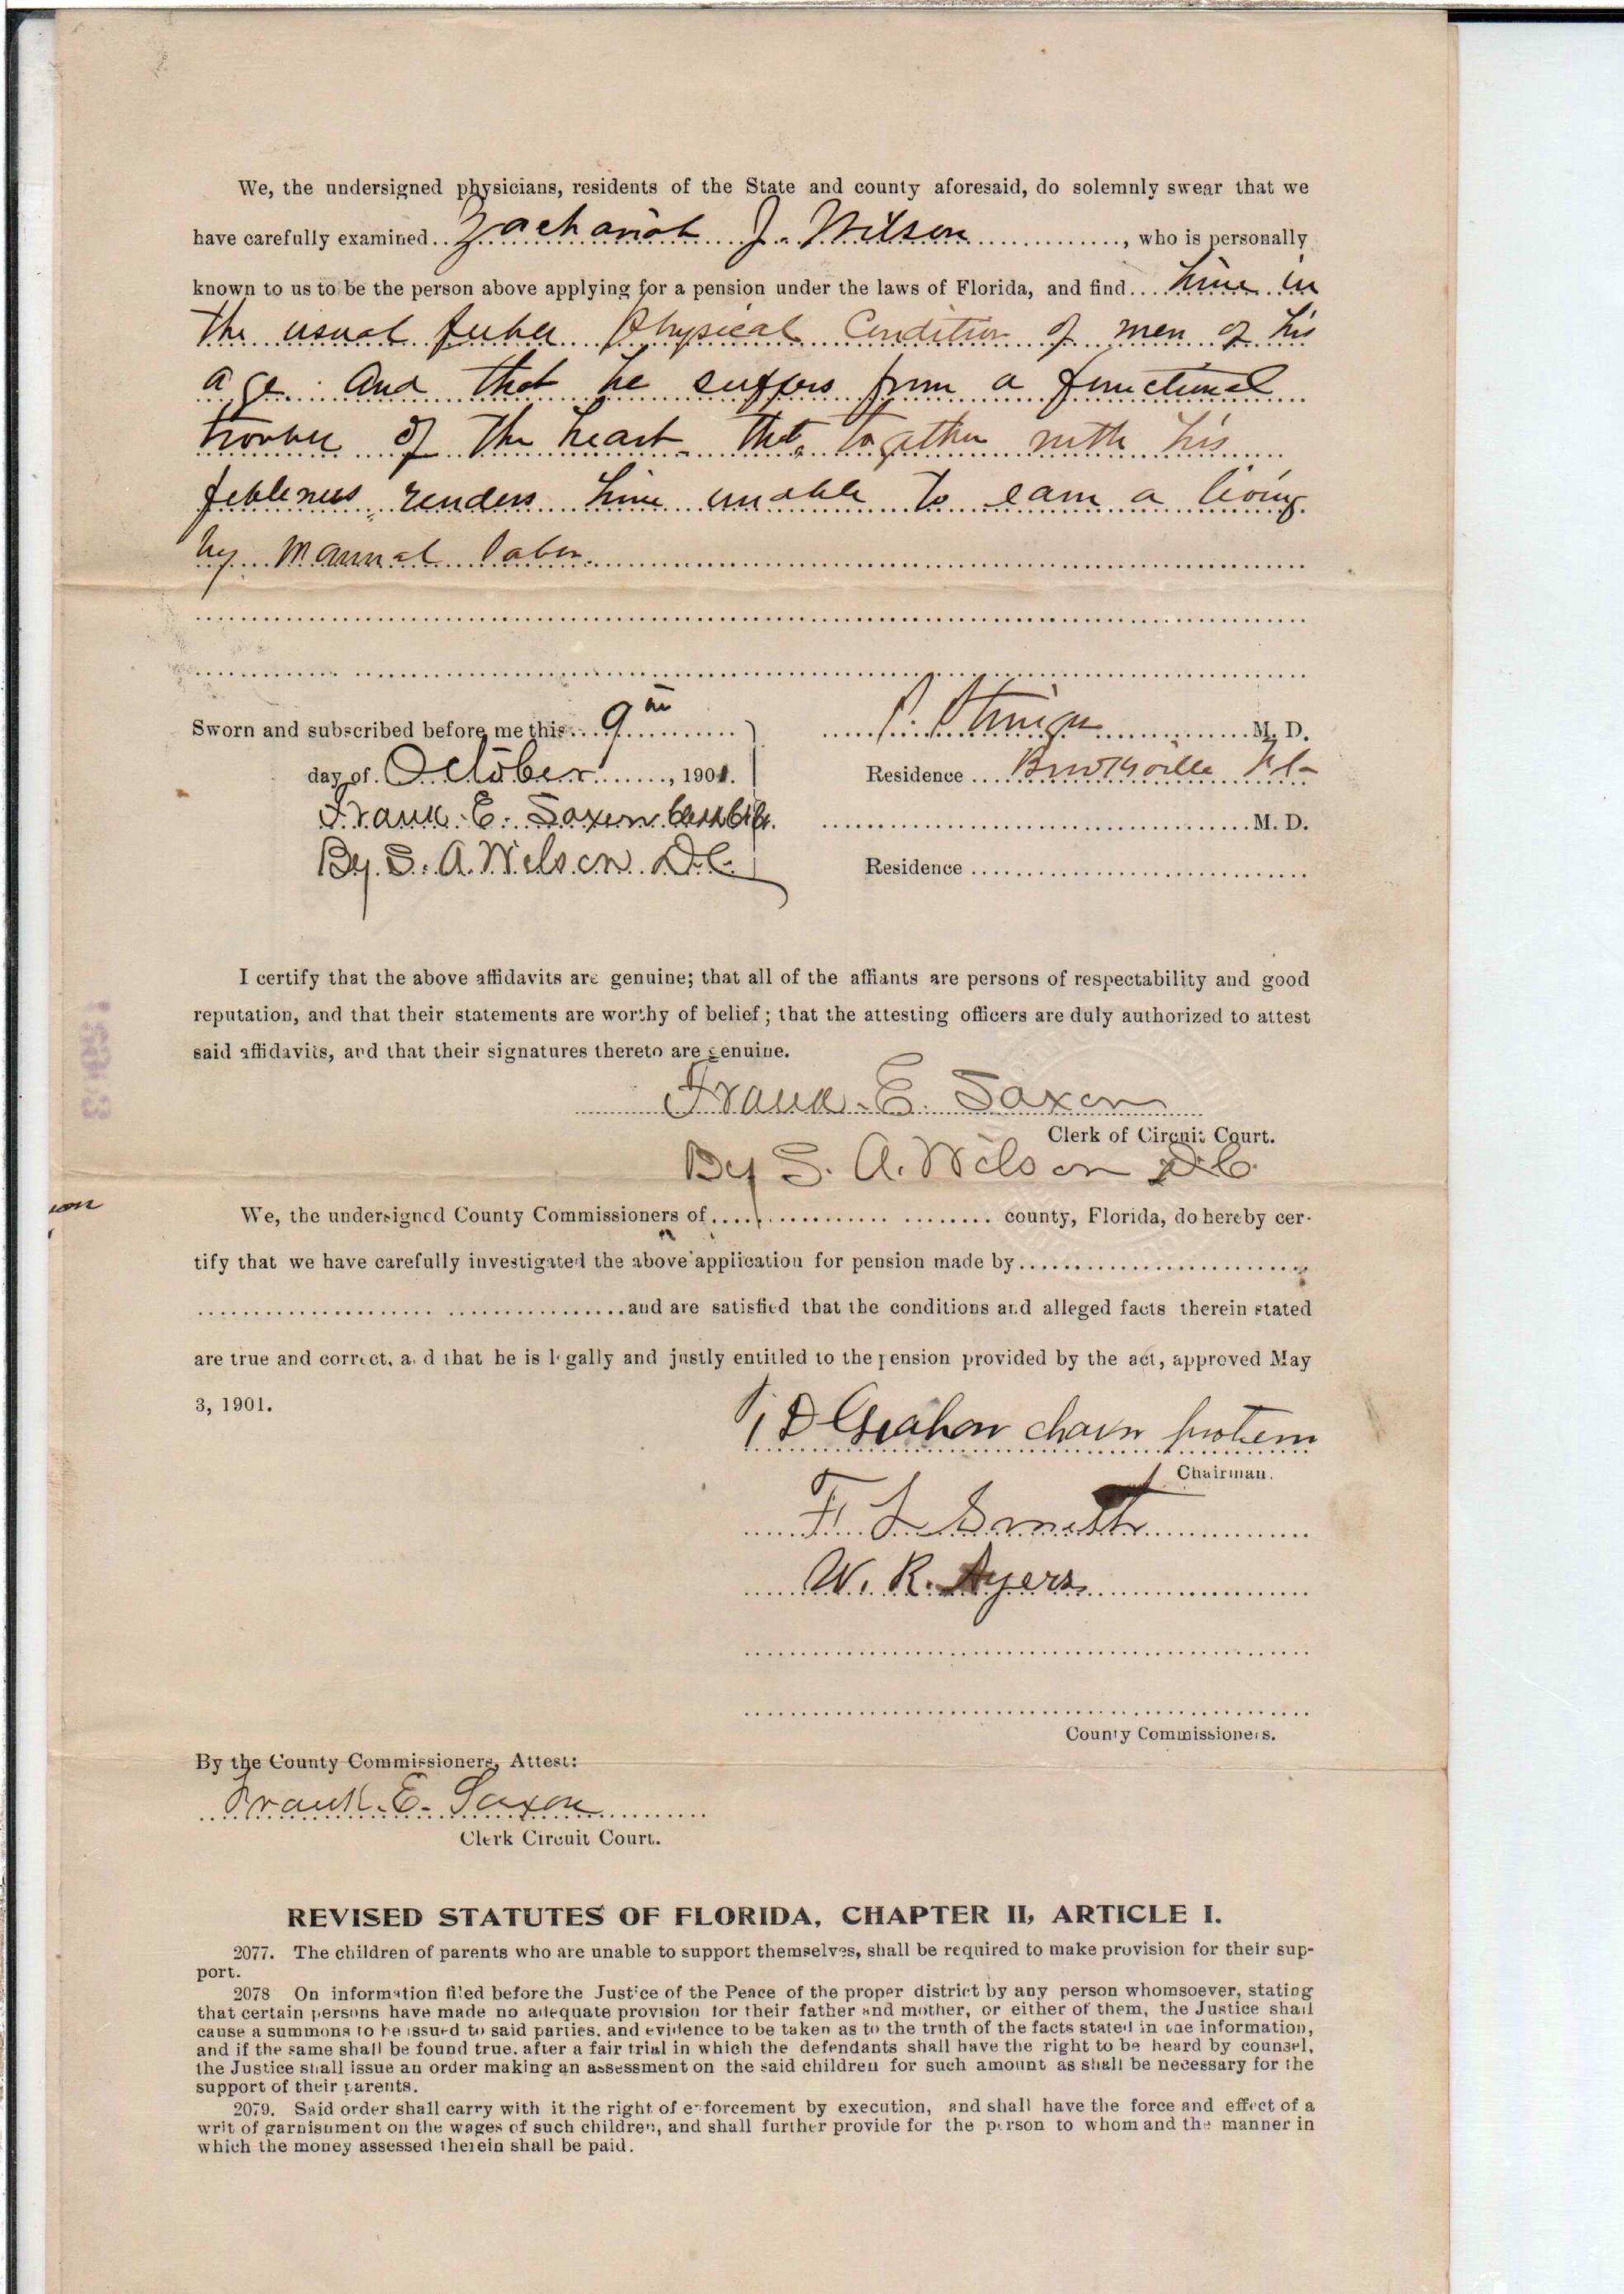 We, the undersigned physicians, residents of the State and county aforesaid, do solemnly swear that we
have carefully examined Zachariah J. Wilson, who is personally
known to us to be the person above applying for a pension under the laws of Florida, and find him in
the usual feeble Physical Condition of men of his
age. And that he suffers from a functional
trouble of the heart that together with his
febleness renders him unable to earn a living
by manual labor.
Sworn and subscribed before me this 9th
M. D.
day of October, 1901.
Residence Brooksville Fla
Frank E. Saxon Clerk
M. D.
By S. A. Wilson D.C.
Residence
I certify that the above affidavits are genuine; that all of the affiants are persons of respectability and good
reputation, and that their statements are worthy of belief; that the attesting officers are duly authorized to attest
said affidavits, and that their signatures thereto are genuine.
Frank E. Saxon
Clerk of Circuit Court.
By S. A. Wilson D.C.
We, the undersigned County Commissioners of county, Florida, do hereby cer-
tify that we have carefully investigated the above application for pension made by
and are satisfied that the conditions and alleged facts therein stated
are true and correct, and that he is legally and justly entitled to the pension provided by the act, approved May
3, 1901.
D Graham chairn protem
Chairman.
F L Smith
W. R. Ayers
County Commissioners.
By the County Commissioners, Attest:
Frank E. Saxon
Clerk Circuit Court.
REVISED STATUTES OF FLORIDA, CHAPTER II, ARTICLE I.
2077. The children of parents who are unable to support themselves, shall be required to make provision for their sup-
port.
2078 On information filed before the Justice of the Peace of the proper district by any person whomsoever, stating
that certain persons have made no adequate provision for their father and mother, or either of them, the Justice shall
cause a summons to be issued to said parties, and evidence to be taken as to the truth of the facts stated in the information,
and if the same shall be found true, after a fair trial in which the defendants shall have the right to be heard by counsel,
the Justice shall issue an order making an assessment on the said children for such amount as shall be necessary for the
support of their parents.
2079. Said order shall carry with it the right of enforcement by execution, and shall have the force and effect of a
writ of garnishment on the wages of such children, and shall further provide for the person to whom and the manner in
which the money assessed therein shall be paid.